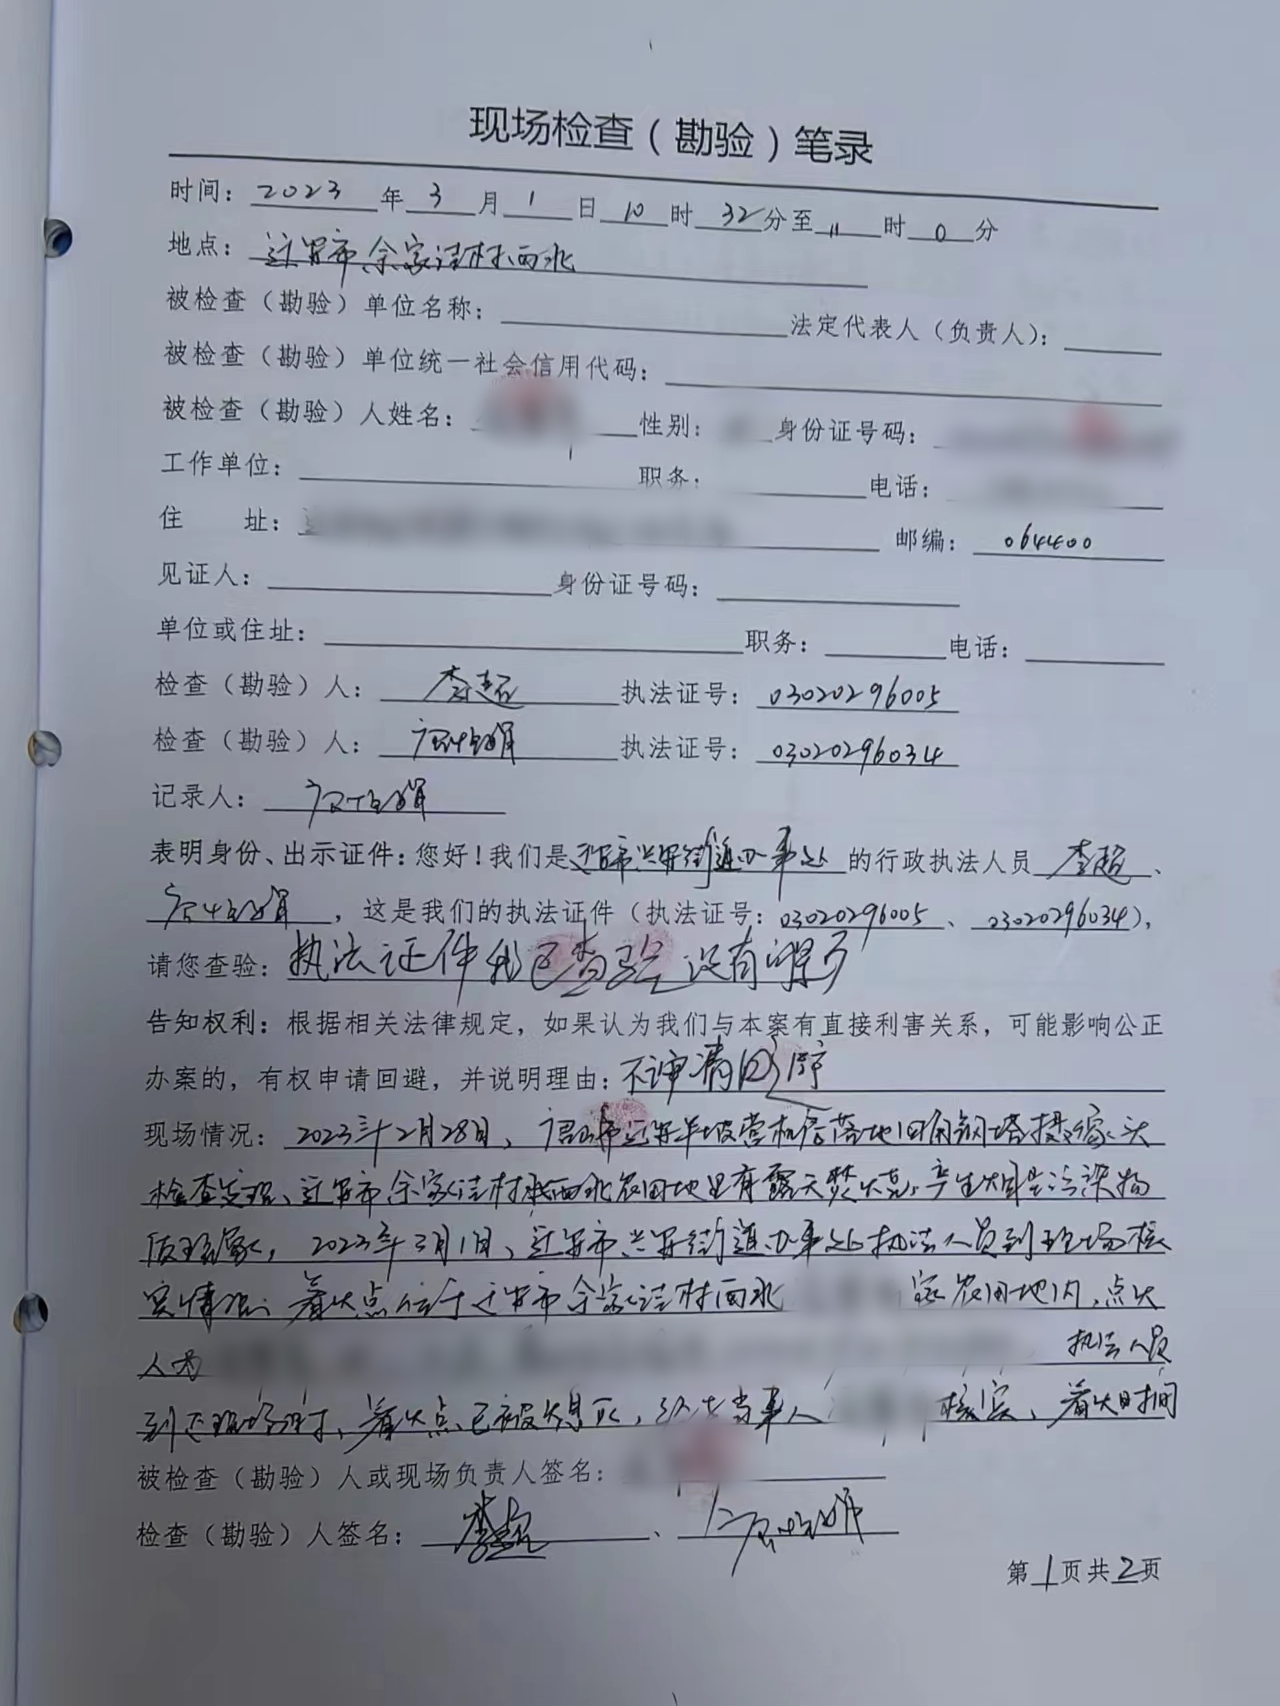 现场检查（勘验）笔录
时间：2023年3月1日10时32分至11时0分
地点：迁安市余家洼村西北
被检查（勘验）单位名称：法定代表人（负责人）：
被检查（勘验）单位统一社会信用代码：
被检查（勘验）人姓名：性别：身份证号码：
工作单位：职务：电话：
住 址：邮编：064400
见证人：身份证号码：
单位或住址：职务：电话：
检查（勘验）人：李超 执法证号：03020296005
检查（勘验）人：执法证号：03020296034
记录人：
表明身份、出示证件：您好！我们是迁安市兴安街道办事处的行政执法人员李超、
，这是我们的执法证件（执法证号：03020296005、03020296034），
请您查验：执法证件我已查验没有异议
告知权利：根据相关法律规定，如果认为我们与本案有直接利害关系，可能影响公正
办案的，有权申请回避，并说明理由：不申请回避
现场情况：2023年2月28日，唐山市迁安羊坡营机房落地四角钢塔摄像头
检查发现、迁安市余家洼村西北农田地里有露天焚火，产生烟尘污染物
质现象，2023年3月1日，迁安市兴安街道办事处执法人员到现场核
实情况：着火点位于迁安市余家洼村西北 家农田地内，点火
人为 执法人员
到达现场时，着火点已被熄灭，经与当事人 核实，着火时间
被检查（勘验）人或现场负责人签名：
检查（勘验）人签名：李超、
第1页共2页